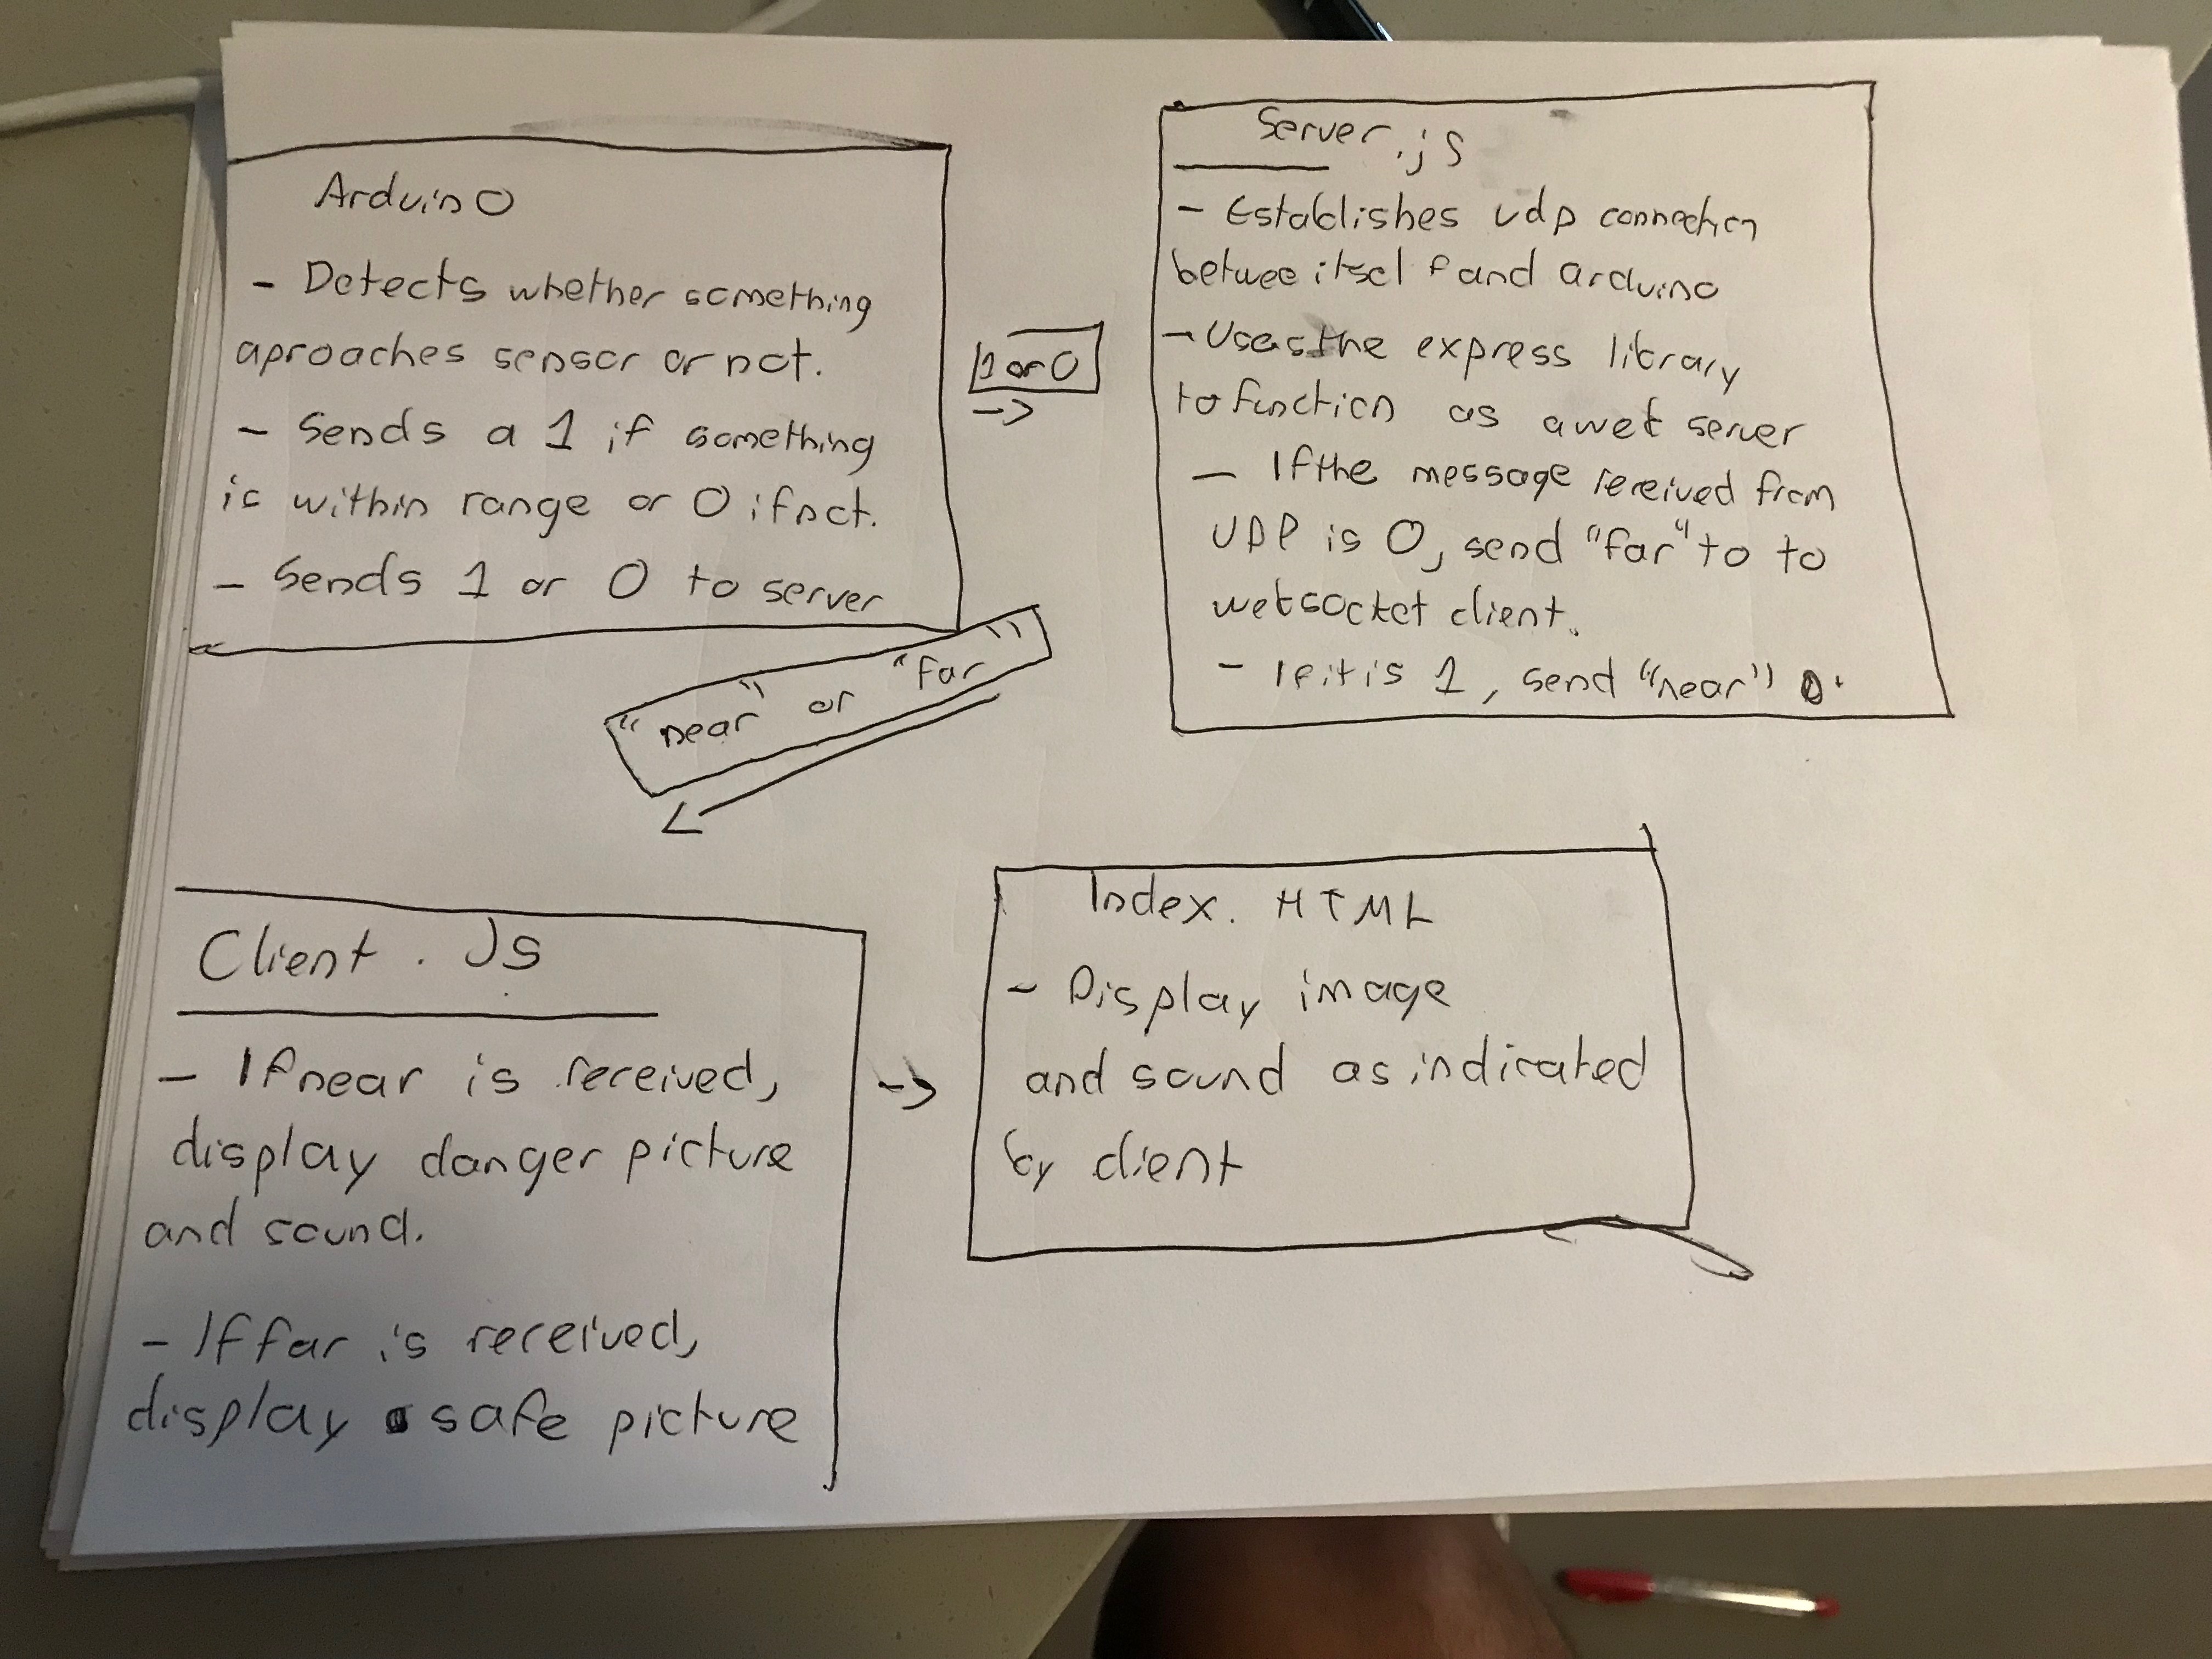 Arduino
- Detects whether something
aproaches sensor or not.
- Sends a 1 if something
is within range or 0 if not.
- Sends 1 or 0 to server
1 or 0
->
Server.js
- Establishes udp connection
betwee itself and arduino
- Uses the express library
to function as a web server
- If the message received from
UDP is 0, send "far" to to
websocket client.
- If it is 1, send "near"
"near" or "far"
Client.Js
- If near is received,
display danger picture
and sound.
- If far is received,
display safe picture
->
Index.HTML
- Display image
and sound as indicated
by client